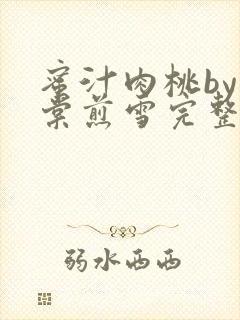 蜜汁肉桃by
棠煎雪完整
弱水西西